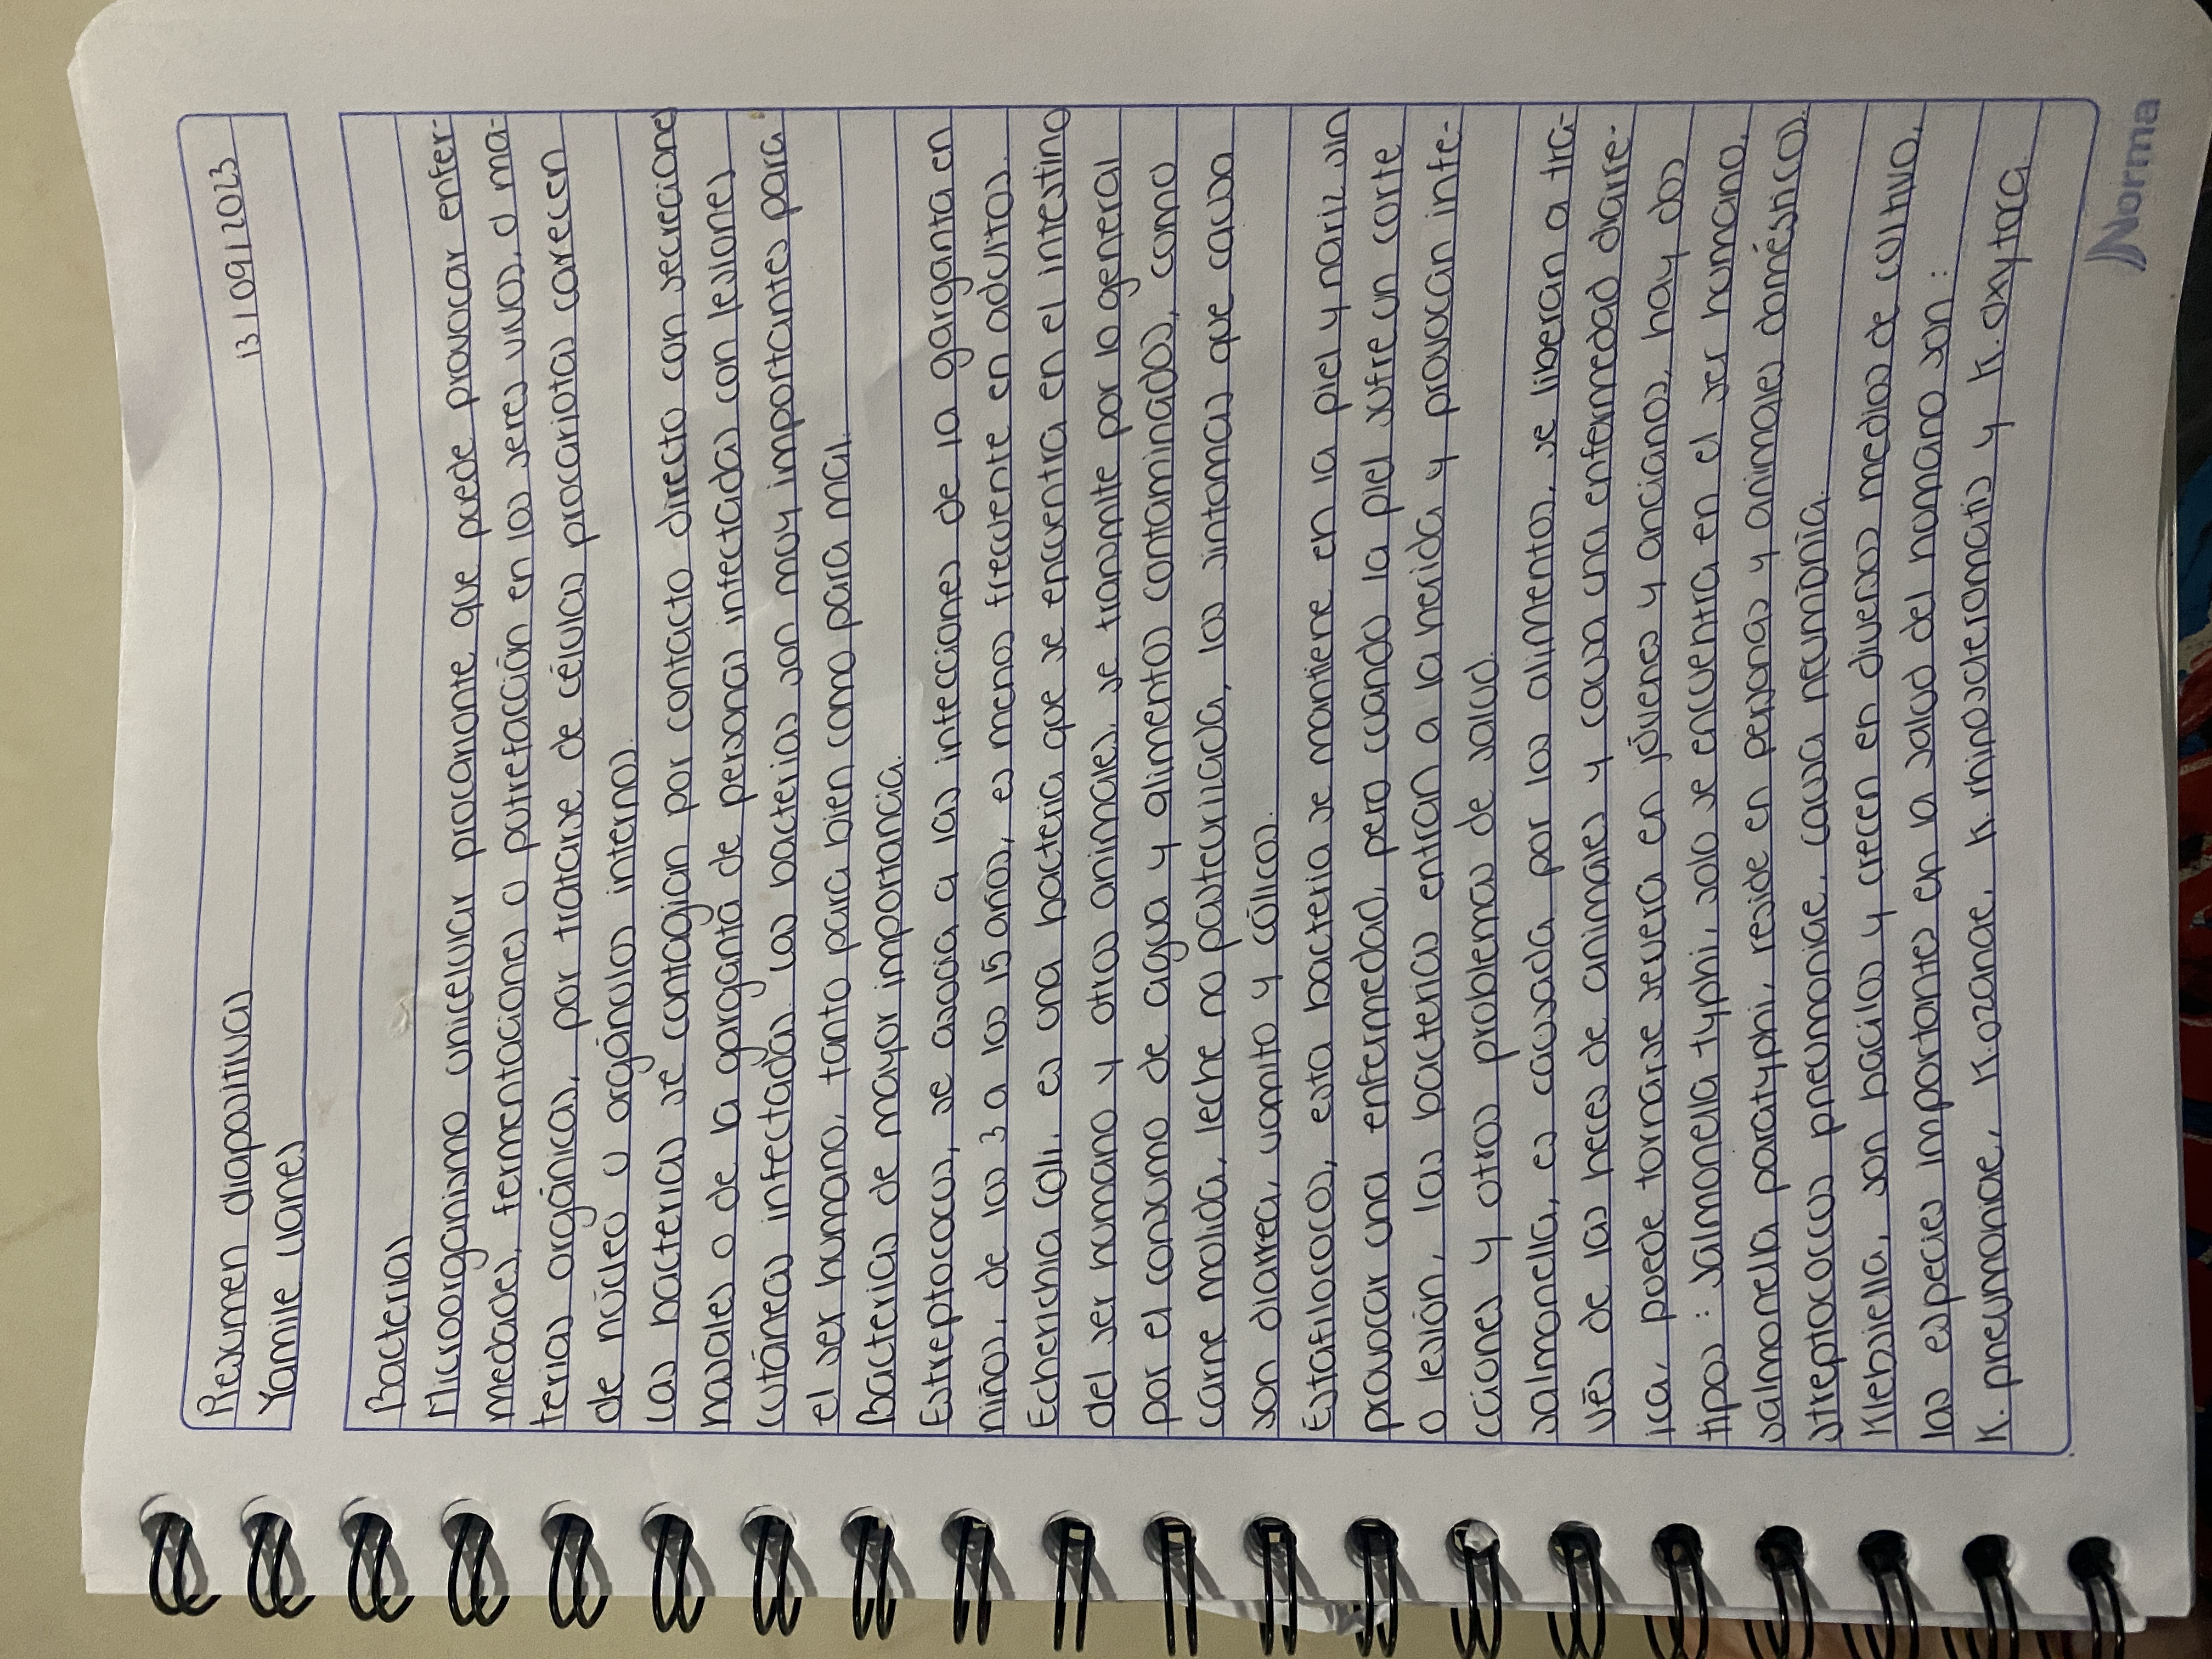 Resumen diapositivas
13/09/2023
Yamile Yanes
Bacterias
Microorganismo unicelular procariante que puede provocar enfer-
medades, fermentaciones o putrefacción en los seres vivos, o ma-
terias orgánicas, por tratarse de células procariotas carecen
de núcleo u orgánulos internos.
Las bacterias se contagian por contacto directo con secreciones
nasales o de la garganta de personas infectadas con lesiones
cutáneas infectadas. Las bacterias son muy importantes para
el ser humano, tanto para bien como para mal.
Bacterias de mayor importancia.
Estreptococos, se asocia a las infecciones de la garganta en
niños, de los 3 a los 15 años, es menos frecuente en adultos.
Echerichia Coli, es una bacteria que se encuentra en el intestino
del ser humano y otros animales, se transmite por lo general
por el consumo de agua y alimentos contaminados, como
carne molida, leche no pasteurizada, los síntomas que causa
son diarrea, vomito y cólicos.
Estafilococos, esta bacteria se mantiene en la piel y nariz sin
provocar una enfermedad, pero cuando la piel sufre un corte
o lesión, las bacterias entran a la herida y provocan infe-
cciones y otros problemas de salud.
Salmonella, es causada por los alimentos, se liberan a tra-
vés de las heces de animales y causa una enfermedad diarre-
ica, puede tornarse severa en jóvenes y ancianos, hay dos
tipos: salmonella typhi, solo se encuentra en el ser humano,
salmonella paratyphi, reside en personas y animales domésticos.
Streptococcus pneumoniae, causa neumonía.
Klebsiella, son bacilos y crecen en diversos medios de cultivo,
las especies importantes en la salud del humano son:
K. pneumoniae, K. ozanae, K. rhinoscleromatis y K. oxytoca.
Norma